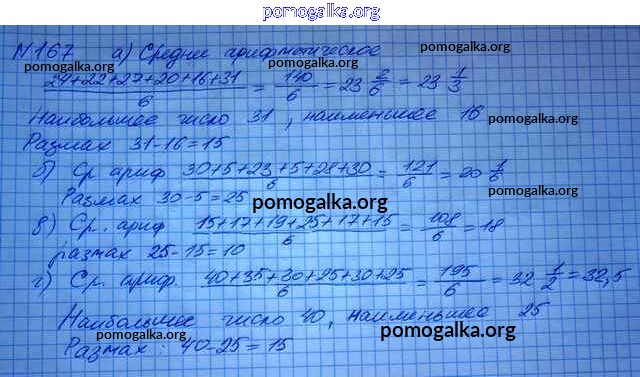 pomogalka.org
№167 а) Среднее арифметическое
pomogalka.org
pomogalka.org
24+22+27+20+16+31/6 = 140/6 = 23 2/6 = 23 1/3
Наибольшее число 31, наименьшее 16
pomogalka.org
Размах 31-16=15
pomogalka.org
б) Ср. ариф 30+5+23+5+28+30/6 = 121/6 = 20 1/6
Размах 30-5=25
pomogalka.org
в) Ср. ариф 15+17+19+25+17+15/6 = 108/6 = 18
размах 25-15=10
pomogalka.org
г) Ср. ариф. 40+35+40+25+30+25/6 = 195/6 = 32 1/2 = 32,5
Наибольшее число 40, наименьшее 25
pomogalka.org
Размах: 40-25=15